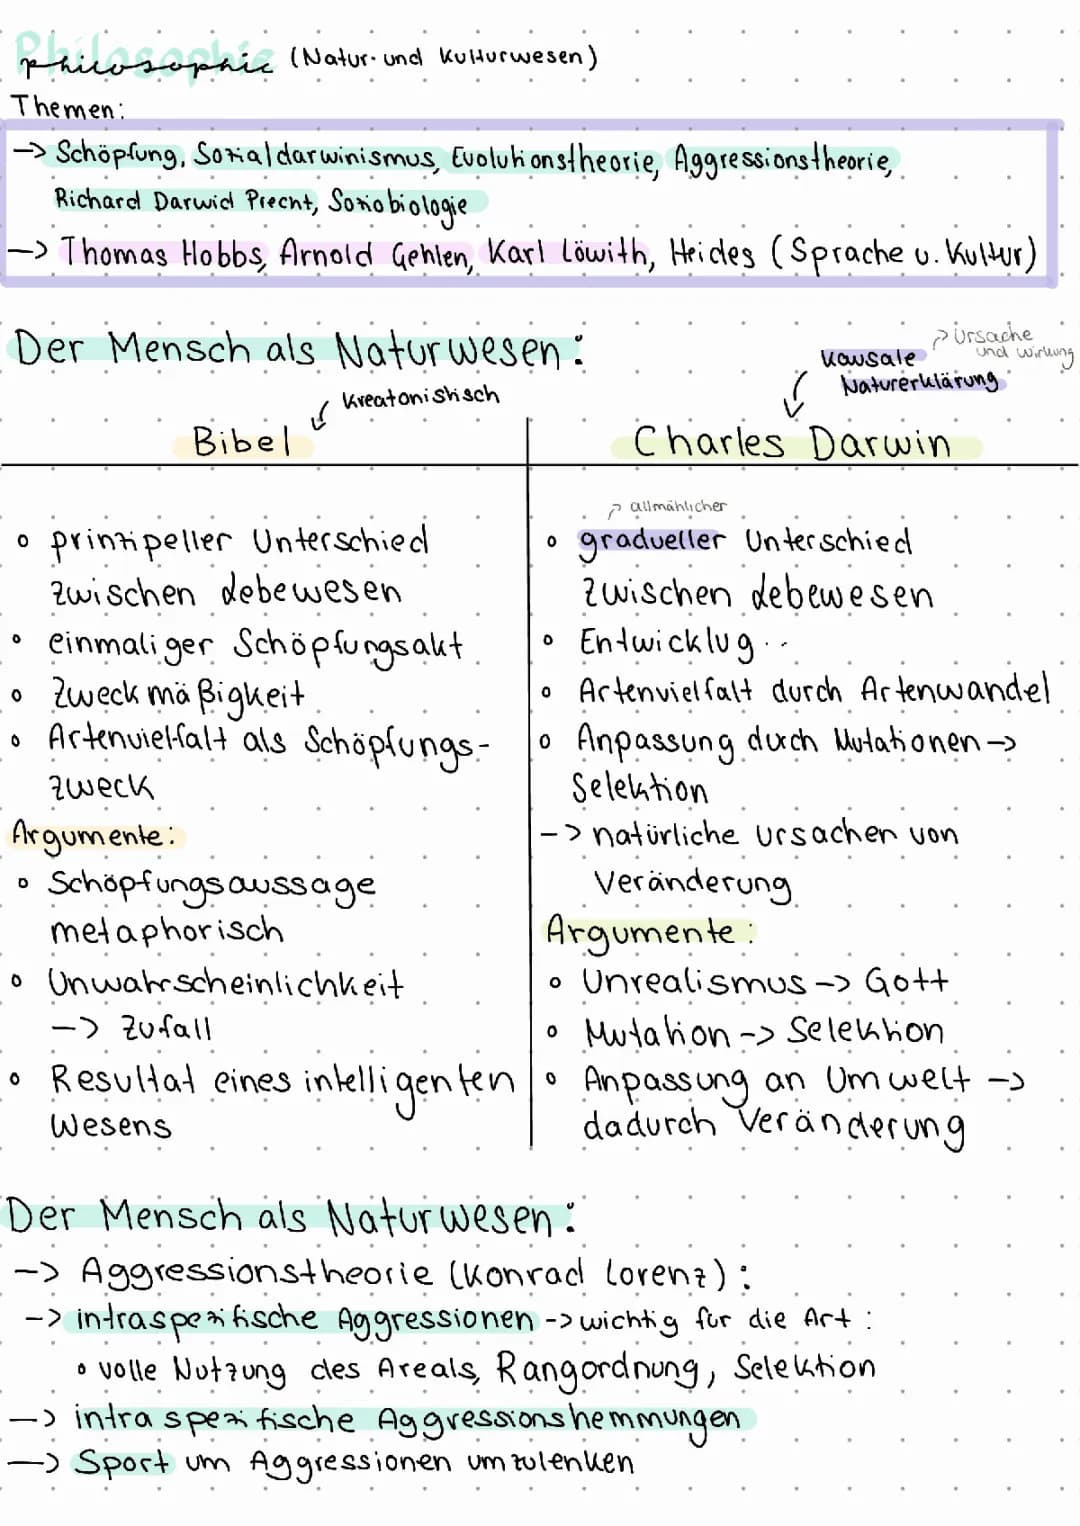 Philosophie (Natur- und Kulturwesen)
Themen:
-> Schöpfung, Sozialdarwinismus, Evolutionstheorie, Aggressionstheorie,
Richard Darwid Precht, Soziobiologie
-> Thomas Hobbs, Arnold Gehlen, Karl Löwith, Heides (Sprache u. Kultur)
Der Mensch als Naturwesen:
Ursache und Wirkung
Kausale Naturerklärung
Kreatonistisch
Bibel
Charles Darwin
o prinzipeller Unterschied
zwischen Lebewesen
o einmaliger Schöpfungsakt
o Zweckmäßigkeit
o Artenvielfalt als Schöpfungs-
zweck
Argumente:
o Schöpfungsaussage
metaphorisch
o Unwahrscheinlichkeit
-> Zufall
o Resultat eines intelligenten
Wesens
allmählicher
o gradueller Unterschied
zwischen Lebewesen
o Entwicklug..
o Artenvielfalt durch Artenwandel
o Anpassung durch Mutationen ->
Selektion
-> natürliche Ursachen von
Veränderung
Argumente:
o Unrealismus -> Gott
o Mutation -> Selektion
o Anpassung an Umwelt ->
dadurch Veränderung
Der Mensch als Naturwesen:
-> Aggressionstheorie (Konrad Lorenz):
-> intraspezifische Aggressionen -> wichtig für die Art:
o volle Nutzung des Areals, Rangordnung, Selektion
-> intraspezifische Aggressionshemmungen
-> Sport um Aggressionen umzulenken